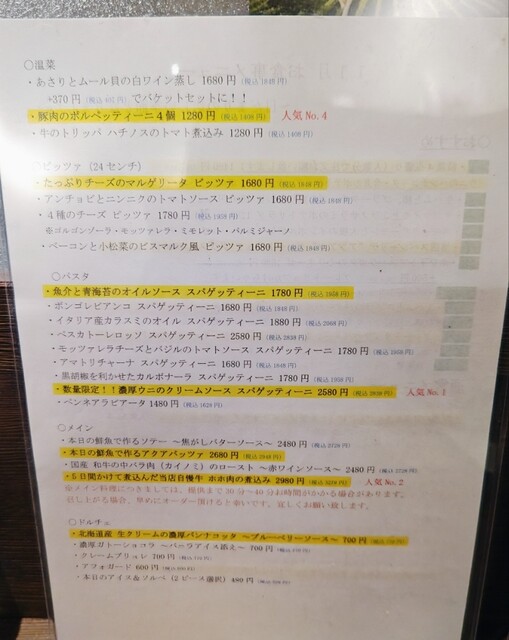 ○温菜
・あさりとムール貝の白ワイン蒸し 1680円(税込1848円)
+370円(税込407円)でバケットセットに！！
・豚肉のポルペッティーニ4個 1280円(税込1408円) 人気No.4
・牛のトリッパ ハチノスのトマト煮込み 1280円(税込1408円)
○ピッツァ(24センチ)
・たっぷりチーズのマルゲリータ ピッツァ 1680円(税込1848円)
・アンチョビとニンニクのトマトソース ピッツァ 1680円(税込1848円)
・4種のチーズ ピッツァ 1780円(税込1958円)
※ゴルゴンゾーラ・モッツァレラ・ミモレット・パルミジャーノ
・ベーコンと小松菜のビスマルク風 ピッツァ 1680円(税込1848円)
○パスタ
・魚介と青海苔のオイルソース スパゲッティーニ 1780円(税込1958円)
・ボンゴレビアンコ スパゲッティーニ 1680円(税込1848円)
・イタリア産カラスミのオイル スパゲッティーニ 1880円(税込2068円)
・ペスカトーレロッソ スパゲッティーニ 2580円(税込2838円)
・モッツァレラチーズとバジルのトマトソース スパゲッティーニ 1780円(税込1958円)
・アマトリチャーナ スパゲッティーニ 1680円(税込1848円)
・黒胡椒を利かせたカルボナーラ スパゲッティーニ 1780円(税込1958円)
・数量限定！！濃厚ウニのクリームソース スパゲッティーニ 2580円(税込2838円) 人気No.1
・ペンネアラビアータ 1480円(税込1628円)
○メイン
・本日の鮮魚で作るソテー ～焦がしバターソース～ 2480円(税込2728円)
・本日の鮮魚で作るアクアパッツァ 2680円(税込2948円)
・国産 和牛の中バラ肉(カイノミ)のロースト ～赤ワインソース～ 2480円(税込2728円)
・5日間かけて煮込んだ当店自慢牛 ホホ肉の煮込み 2980円(税込3278円) 人気No.2
※メイン料理につきましては、提供まで30分～40分お時間がかかる場合があります。
召し上がる場合、早めにオーダー頂けると幸いです。宜しくお願い致します。
○ドルチェ
・北海道産 生クリームの濃厚パンナコッタ ～ブルーベリーソース～ 700円
・濃厚ガトーショコラ ～バニラアイス添え～ 700円
・クレームブリュレ 700円
・アフォガード 600円
・本日のアイス＆ソルベ(2ピース選択) 480円